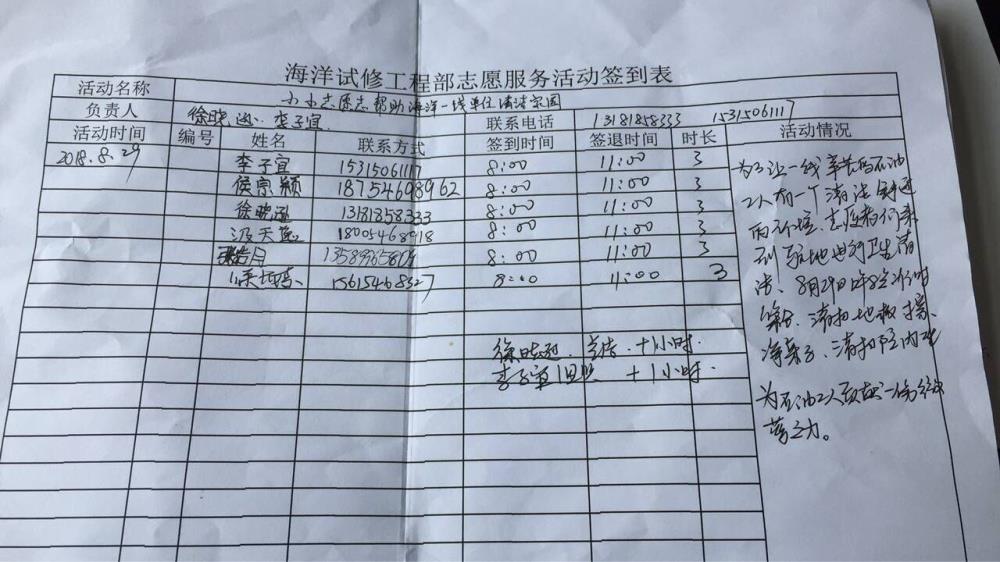 海洋试修工程部志愿服务活动签到表
活动名称 小小志愿志帮助海洋一线单位清洁家园
负责人 徐晓涵、李子宜 联系电话 13181858333 15315061117
活动时间 编号 姓名 联系方式 签到时间 签退时间 时长 活动情况
2018.8.29 李子宜 15315061117 8:00 11:00 3
侯宗颖 18754698962 8:00 11:00 3
徐晓涵 13181858333 8:00 11:00 3
天 8:00 11:00 3
月 8:00 11:00 3
15615468327 8:00 11:00 3
为了让一线辛苦的石油
工人有一个清洁舒适
的环境,志愿者们来
到驻地进行卫生清
洁。8月29日早8点
集合,清扫地板,擦
净桌子,清扫院内
为石油工人贡献一份
薄之力。
徐晓涵 +1小时.
李子宜 +1小时.